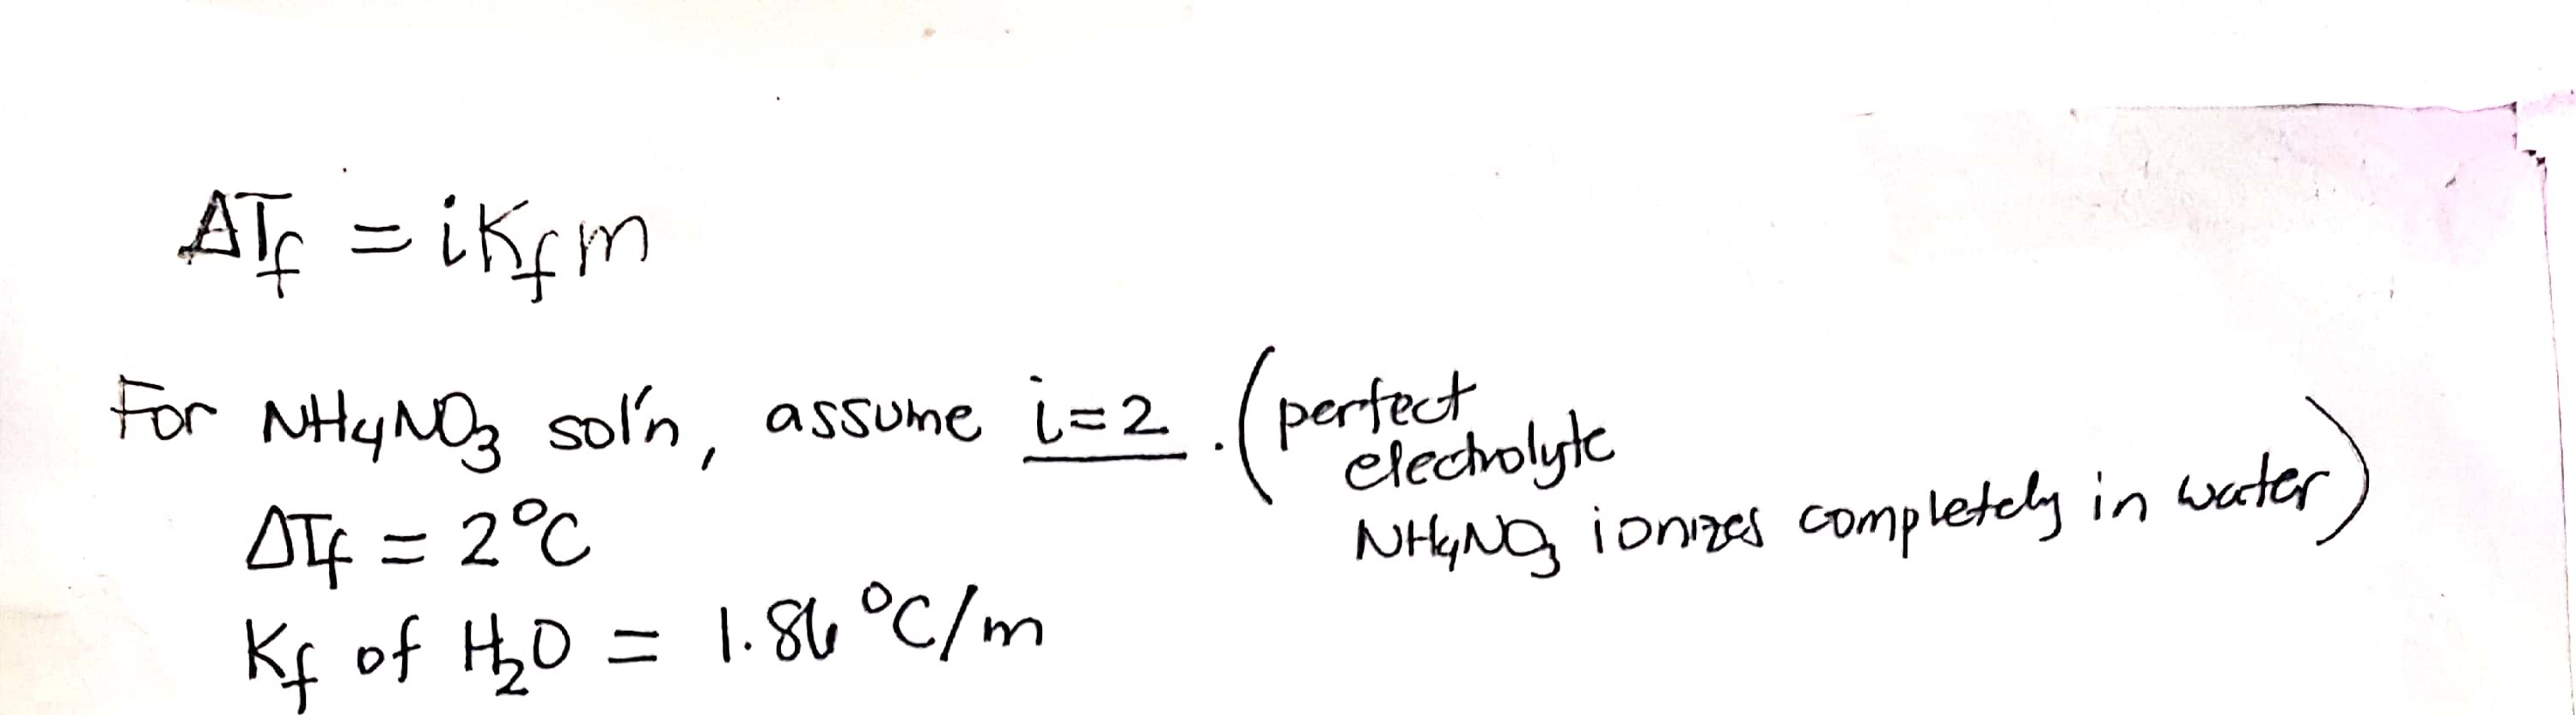 ΔTf = iKfm
For NH4NO3 sol'n, assume i=2. (perfect
electrolyte
NH4NO3 ionizes completely in water)
ΔTf = 2°C
Kf of H2O = 1.86 °C/m